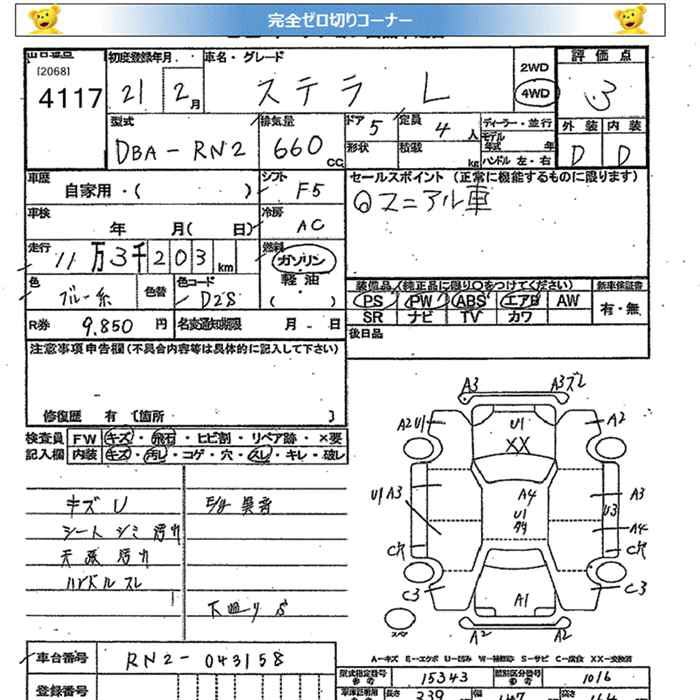 完全ゼロ切りコーナー
出品番号 初度登録年月 車名・グレード 2WD 評価点
[2068]
4117 21 2月 ステラ L 4WD 3
型式 排気量 ドア 5 定員 4人 ディーラー・並行 外装 内装
DBA-RN2 660cc 形状 積載 kg モデル年式 年 D D
ハンドル 左・右
車歴 シフト セールスポイント (正常に機能するものに限ります)
自家用・( ) F5 マニアル車
車検 冷房
年 月( 日) AC
走行 燃料
11万3千203km ガソリン・軽油
色 色替 色コード ( ) 装備品(純正品に限り○をつけてください) 新車保証書
ブルー系 D28 PS PW ABS エアB AW 有・無
R券 9.850円 名変通知期限 月 日 SR ナビ TV カワ
注意事項申告欄(不具合内容等は具体的に記入して下さい) 後日品
修復歴 有 [箇所 ]
検査員 FW キズ・飛石・ヒビ割・リペア跡・×要
記入欄 内装 キズ・汚レ・コゲ・穴・スレ・キレ・破レ
キズ U E/g 異音
シート シミ 汚れ
天張 汚れ
ハンドル スレ
下廻り S
A3 A3ズレ
A2 U1 U1 A2
XX
U1 A3 A4 A3
U1 U3
A4
C穴 C穴
C3 A1 C3
スペア A2 A2
A-キズ E-エクボ U-凹み W-補修跡 S-サビ C-腐食 XX-交換済
車台番号 RN2-043158 型式指定番号 15343 類別区分番号 1016
登録番号 長さ 339 147 164